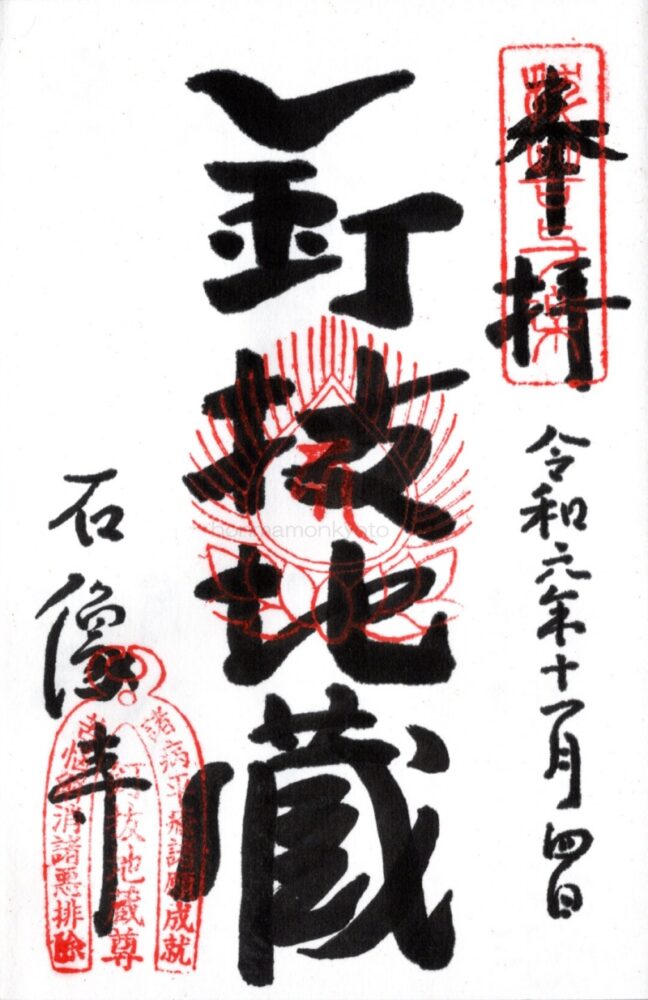 奉拝
抜苦与楽
令和六年十一月四日
釘抜地蔵
honmamonkyoto
石像寺
諸病平癒諸願成就
釘抜地蔵尊
消諸悪排除